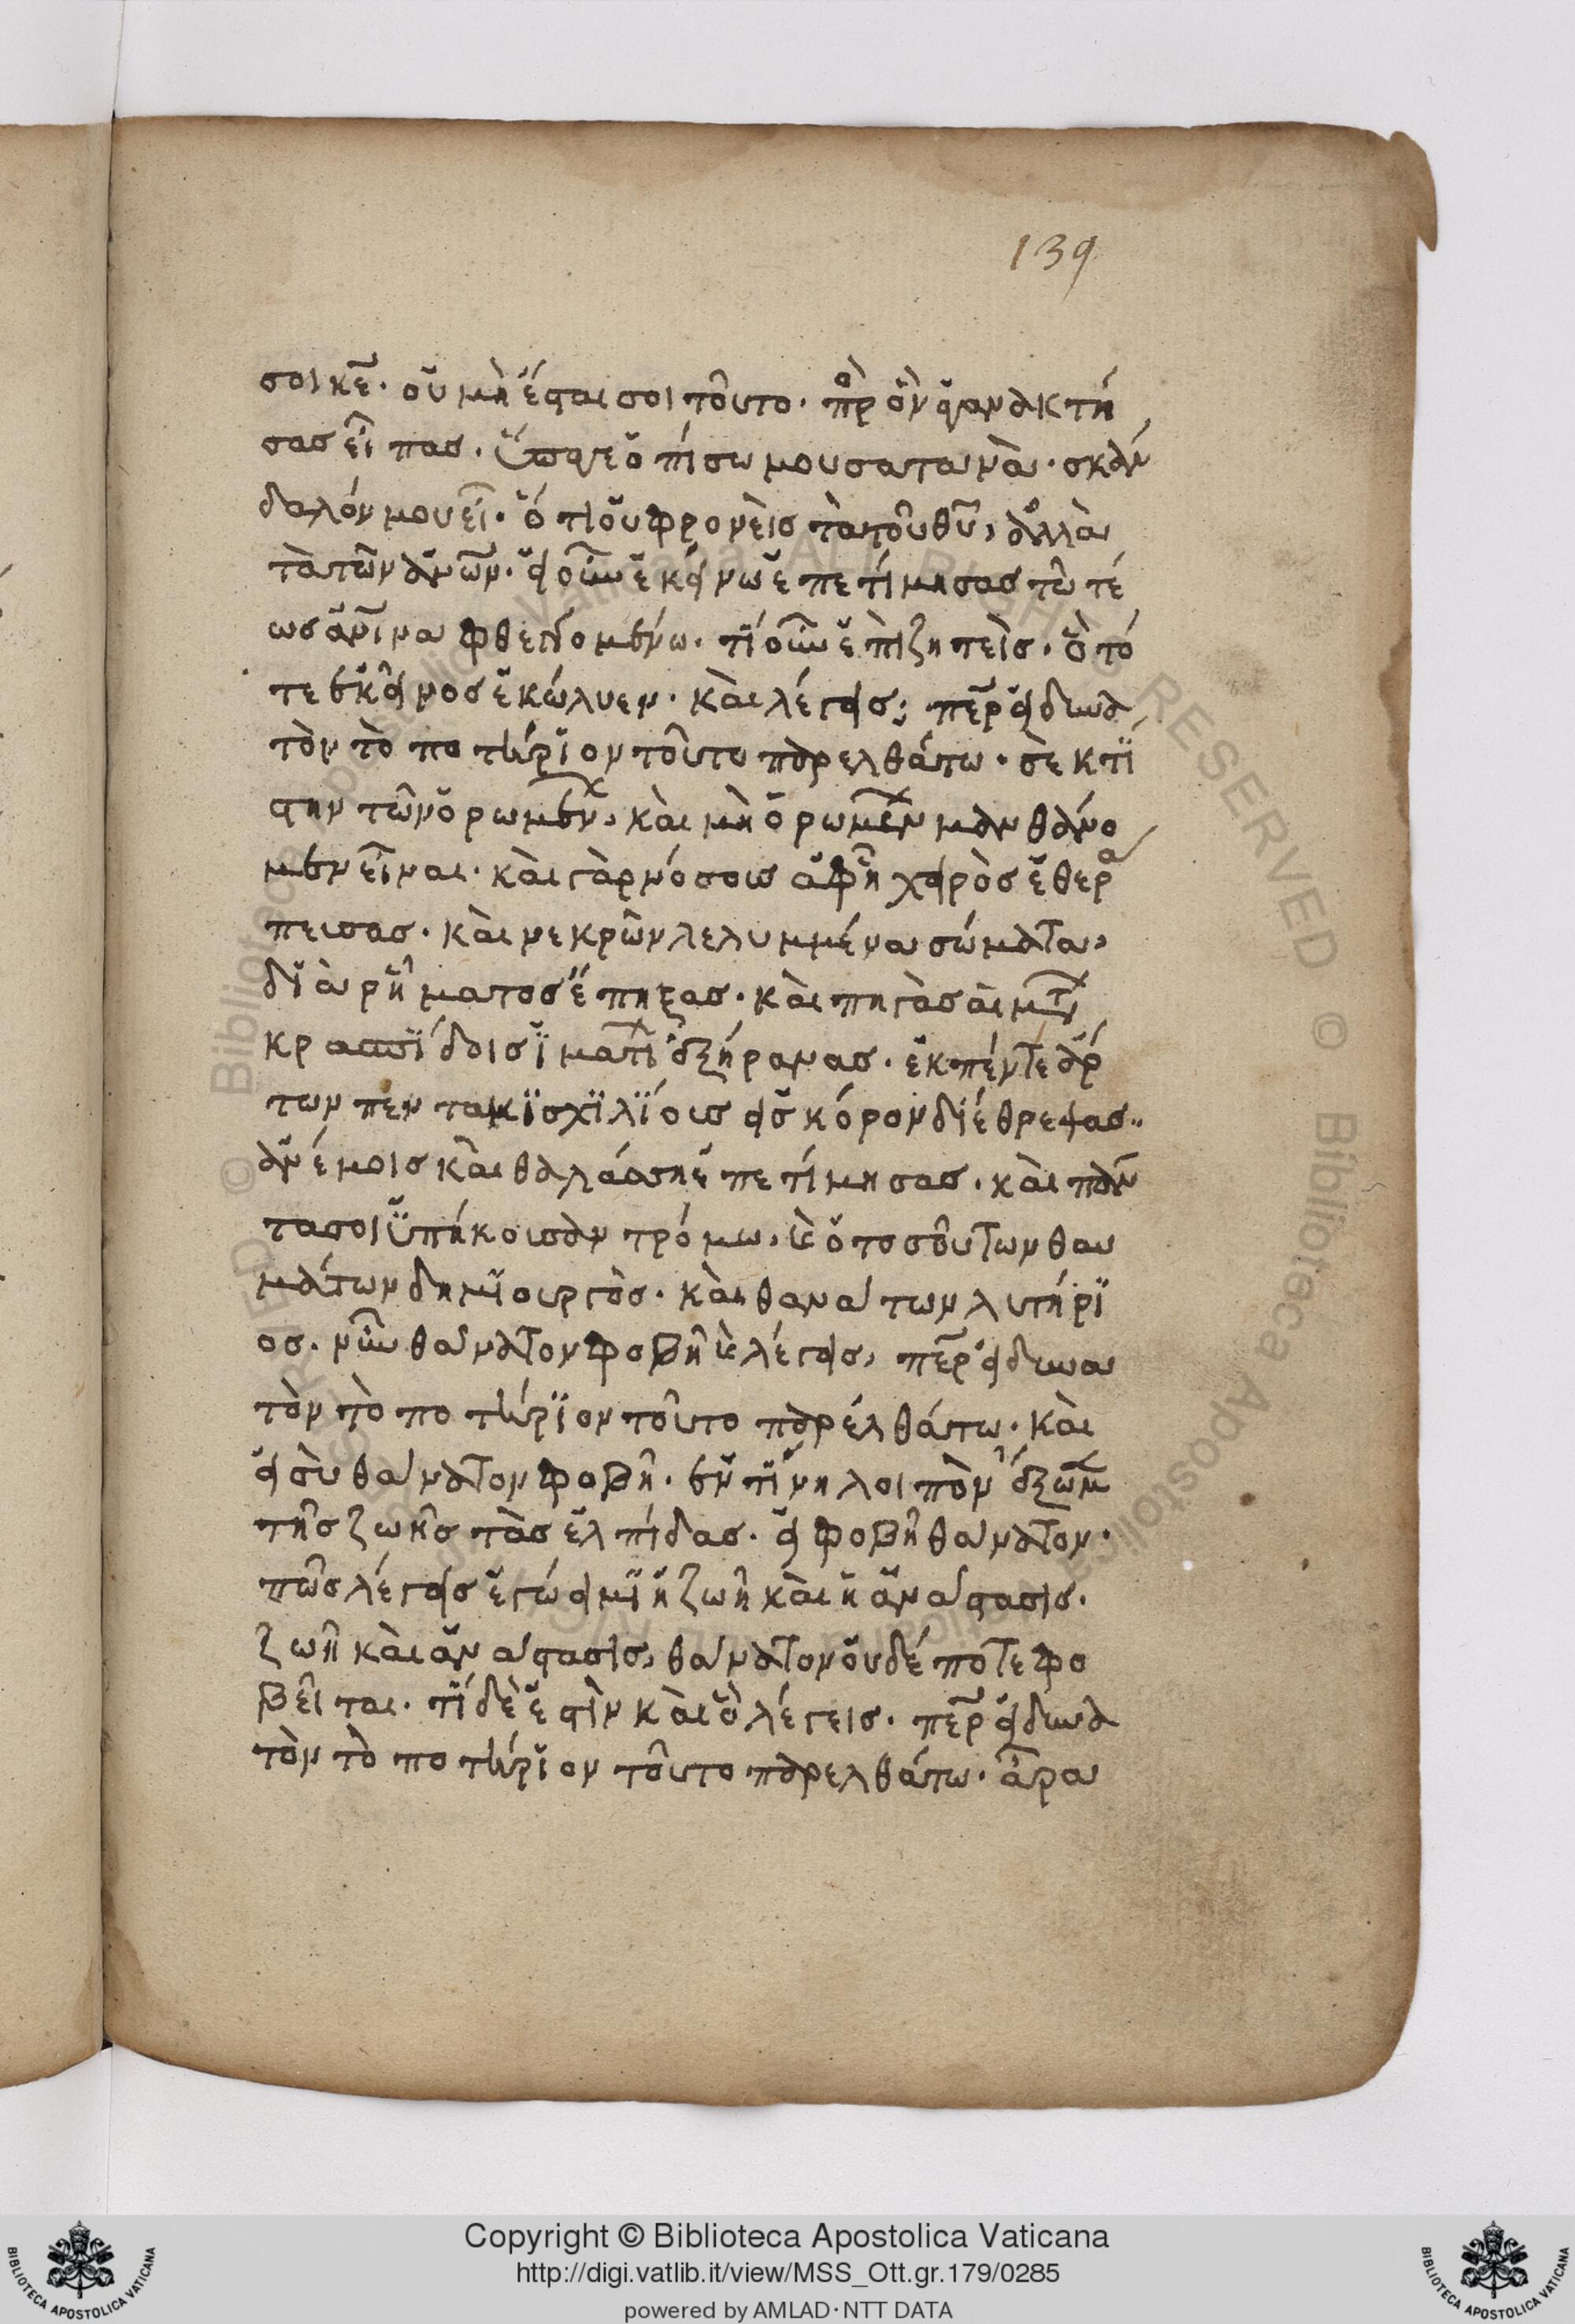 139
σοι κε̅. οὐ μὴ ἔσται σοι τοῦτο. πρὸς ὃν ἀγανακτή
σας εἶπας. ὕπαγε ὀπίσω μου σατανᾶ. σκάν
δαλόν μου εἶ. ὅτι οὐ φρονεῖς τὰ τοῦ θυ̅, ἀλλὰ
τὰ τῶν ἀνω̅ν. εἰ οὖν ἐκείνω ἐπετίμησας τῶ τέ
ως ἀνῖνα φθεγγομένω. τί οὖν ἐπιζητεῖς. ὃ τό
τε ἐκεῖνος ἐκώλυεν. καὶ λέγεις; περ εἰ δυνα
τὸν τὸ ποτήριον τοῦτο παρελθάτω. σὲ κτί
στην τῶν ὁρωμέν, καὶ μὴ ὁρωμέν μανθάνο
μεν εἶναι. καὶ γὰρ νόσοις ἀφῆ χειρὸς ἐθερα
πευσας. καὶ νεκρῶν λελυμμένα σώματα,
διὰ ῥήματος ἔπηξας. καὶ πηγὰς αἱμτ
κρασπίδοις ἱματί ἐξήρανας. ἐκ πέντε ἄρ
των πεντακισχιλίοις εἰς κόρον διέθρεψας..
ἀνέμοις καὶ θαλάσση ἐπετίμησας. καὶ πάν
τα σοι ὑπήκοισαν τρόμω. καὶ ὁ τοσούτων θαυ
μάτων δημιουργὸς. καὶ θανάτων λυτήρι
ος. νῦν θάνατον φοβῆ καὶ λέγεις, περ εἰ δυνα
τὸν τὸ ποτήριον τοῦτο παρέλθάτω. καὶ
εἰ σὺ θάνατον φοβῆ. ἐν τίνη λοιπὸν ἕξωμ
τῆς ζωῆς τὰς ἐλπίδας. εἰ φοβῆ θάνατον.
πῶς λέγεις ἐγώ εἰμι ἡ ζωὴ καὶ ἡ ἀνάστασις.
ζωὴ καὶ ἀνάστασις, θάνατον οὐδέποτε φο
βεῖται. τί δὲ ἐστὶν καὶ ὃ λέγεις. περ εἰ δυνα
τὸν τὸ ποτήριον τοῦτο παρελθάτω. ἆρα
Copyright © Biblioteca Apostolica Vaticana
http://digi.vatlib.it/view/MSS_Ott.gr.179/0285
powered by AMLAD·NTT DATA